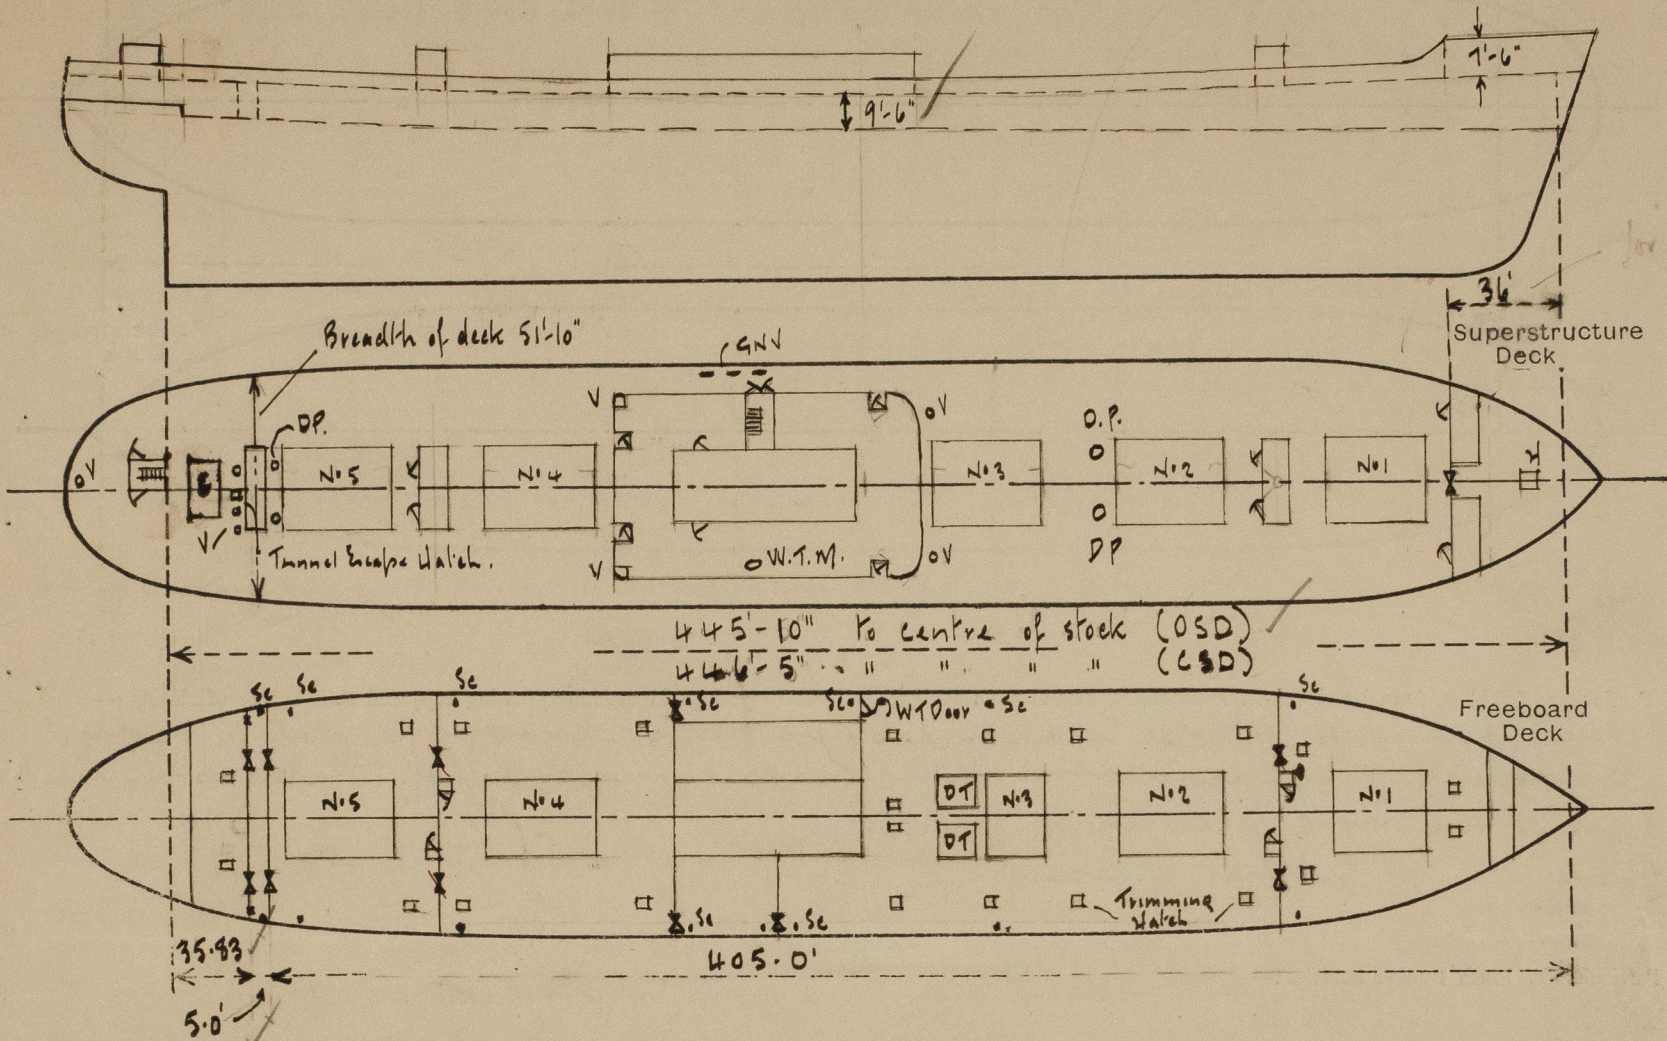 7'-6"
9'-6"
36'
Superstructure
Deck
Breadth of deck 51'-10"
GNV
V
V
D.P.
DP.
V
No5
No4
No3
No2
No1
V
Tunnel Escape Hatch.
V
W.T.M.
V
DP
445'-10" to centre of stock (OSD)
446'-5" " " " " (CSD)
Sc
Sc
Sc
Sc
Sc
WTDoor
Sc
Sc
Freeboard
Deck
No5
No4
DT
No3
No2
No1
DT
Trimming
Hatch
Sc
Sc
35.83
405.0'
5.0'